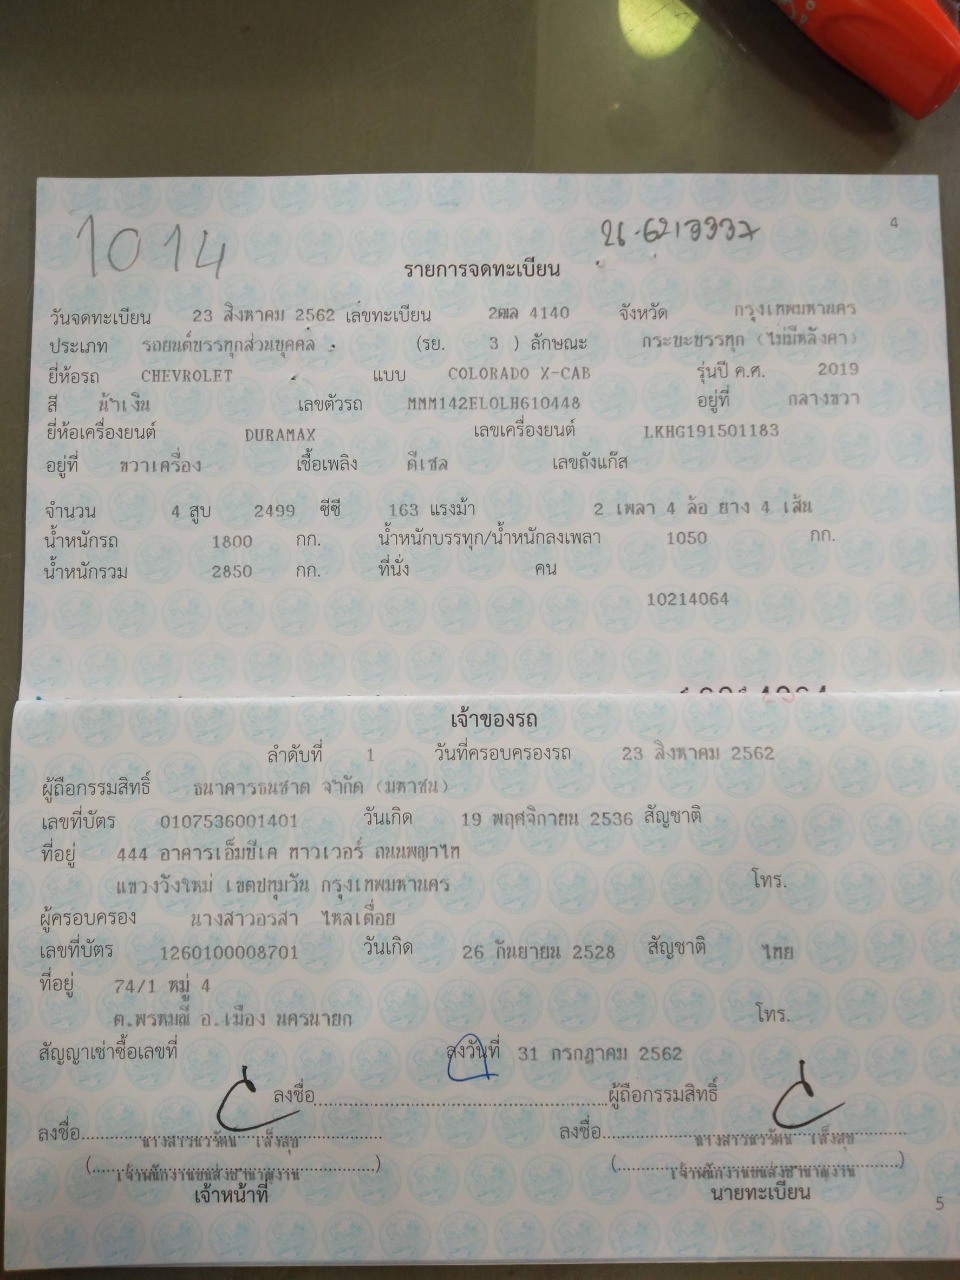 1014
26-6213937
4
รายการจดทะเบียน
วันจดทะเบียน 23 สิงหาคม 2562 เลขทะเบียน 2ฒล 4140 จังหวัด กรุงเทพมหานคร
ประเภท รถยนต์บรรทุกส่วนบุคคล (รย. 3 ) ลักษณะ กระบะบรรทุก (ไม่มีหลังคา)
ยี่ห้อรถ CHEVROLET แบบ COLORADO X-CAB รุ่นปี ค.ศ. 2019
สี น้ำเงิน เลขตัวรถ MMM142ELOLH610448 อยู่ที่ กลางขวา
ยี่ห้อเครื่องยนต์ DURAMAX เลขเครื่องยนต์ LKHG191501183
อยู่ที่ ขวาเครื่อง เชื้อเพลิง ดีเซล เลขถังแก๊ส
จำนวน 4 สูบ 2499 ซีซี 163 แรงม้า 2 เพลา 4 ล้อ ยาง 4 เส้น
น้ำหนักรถ 1800 กก. น้ำหนักบรรทุก/น้ำหนักลงเพลา 1050 กก.
น้ำหนักรวม 2850 กก. ที่นั่ง คน
10214064
เจ้าของรถ
ลำดับที่ 1 วันที่ครอบครองรถ 23 สิงหาคม 2562
ผู้ถือกรรมสิทธิ์ ธนาคารธนชาต จำกัด (มหาชน)
เลขที่บัตร 0107536001401 วันเกิด 19 พฤศจิกายน 2536 สัญชาติ
ที่อยู่ 444 อาคารเอ็มบีเค ทาวเวอร์ ถนนพญาไท
แขวงวังใหม่ เขตปทุมวัน กรุงเทพมหานคร โทร.
ผู้ครอบครอง นางสาวอรสา ไหลเตื่อย
เลขที่บัตร 1260100008701 วันเกิด 26 กันยายน 2528 สัญชาติ ไทย
ที่อยู่ 74/1 หมู่ 4
ต.พรหมณี อ.เมือง นครนายก โทร.
สัญญาเช่าซื้อเลขที่ ลงวันที่ 31 กรกฎาคม 2562
ลงชื่อ ผู้ถือกรรมสิทธิ์
ลงชื่อ นางสาวนวรัตน์ เส็งสุข ลงชื่อ นางสาวนวรัตน์ เส็งสุข
(เจ้าพนักงานขนส่งชำนาญงาน) (เจ้าพนักงานขนส่งชำนาญงาน)
เจ้าหน้าที่ นายทะเบียน
5